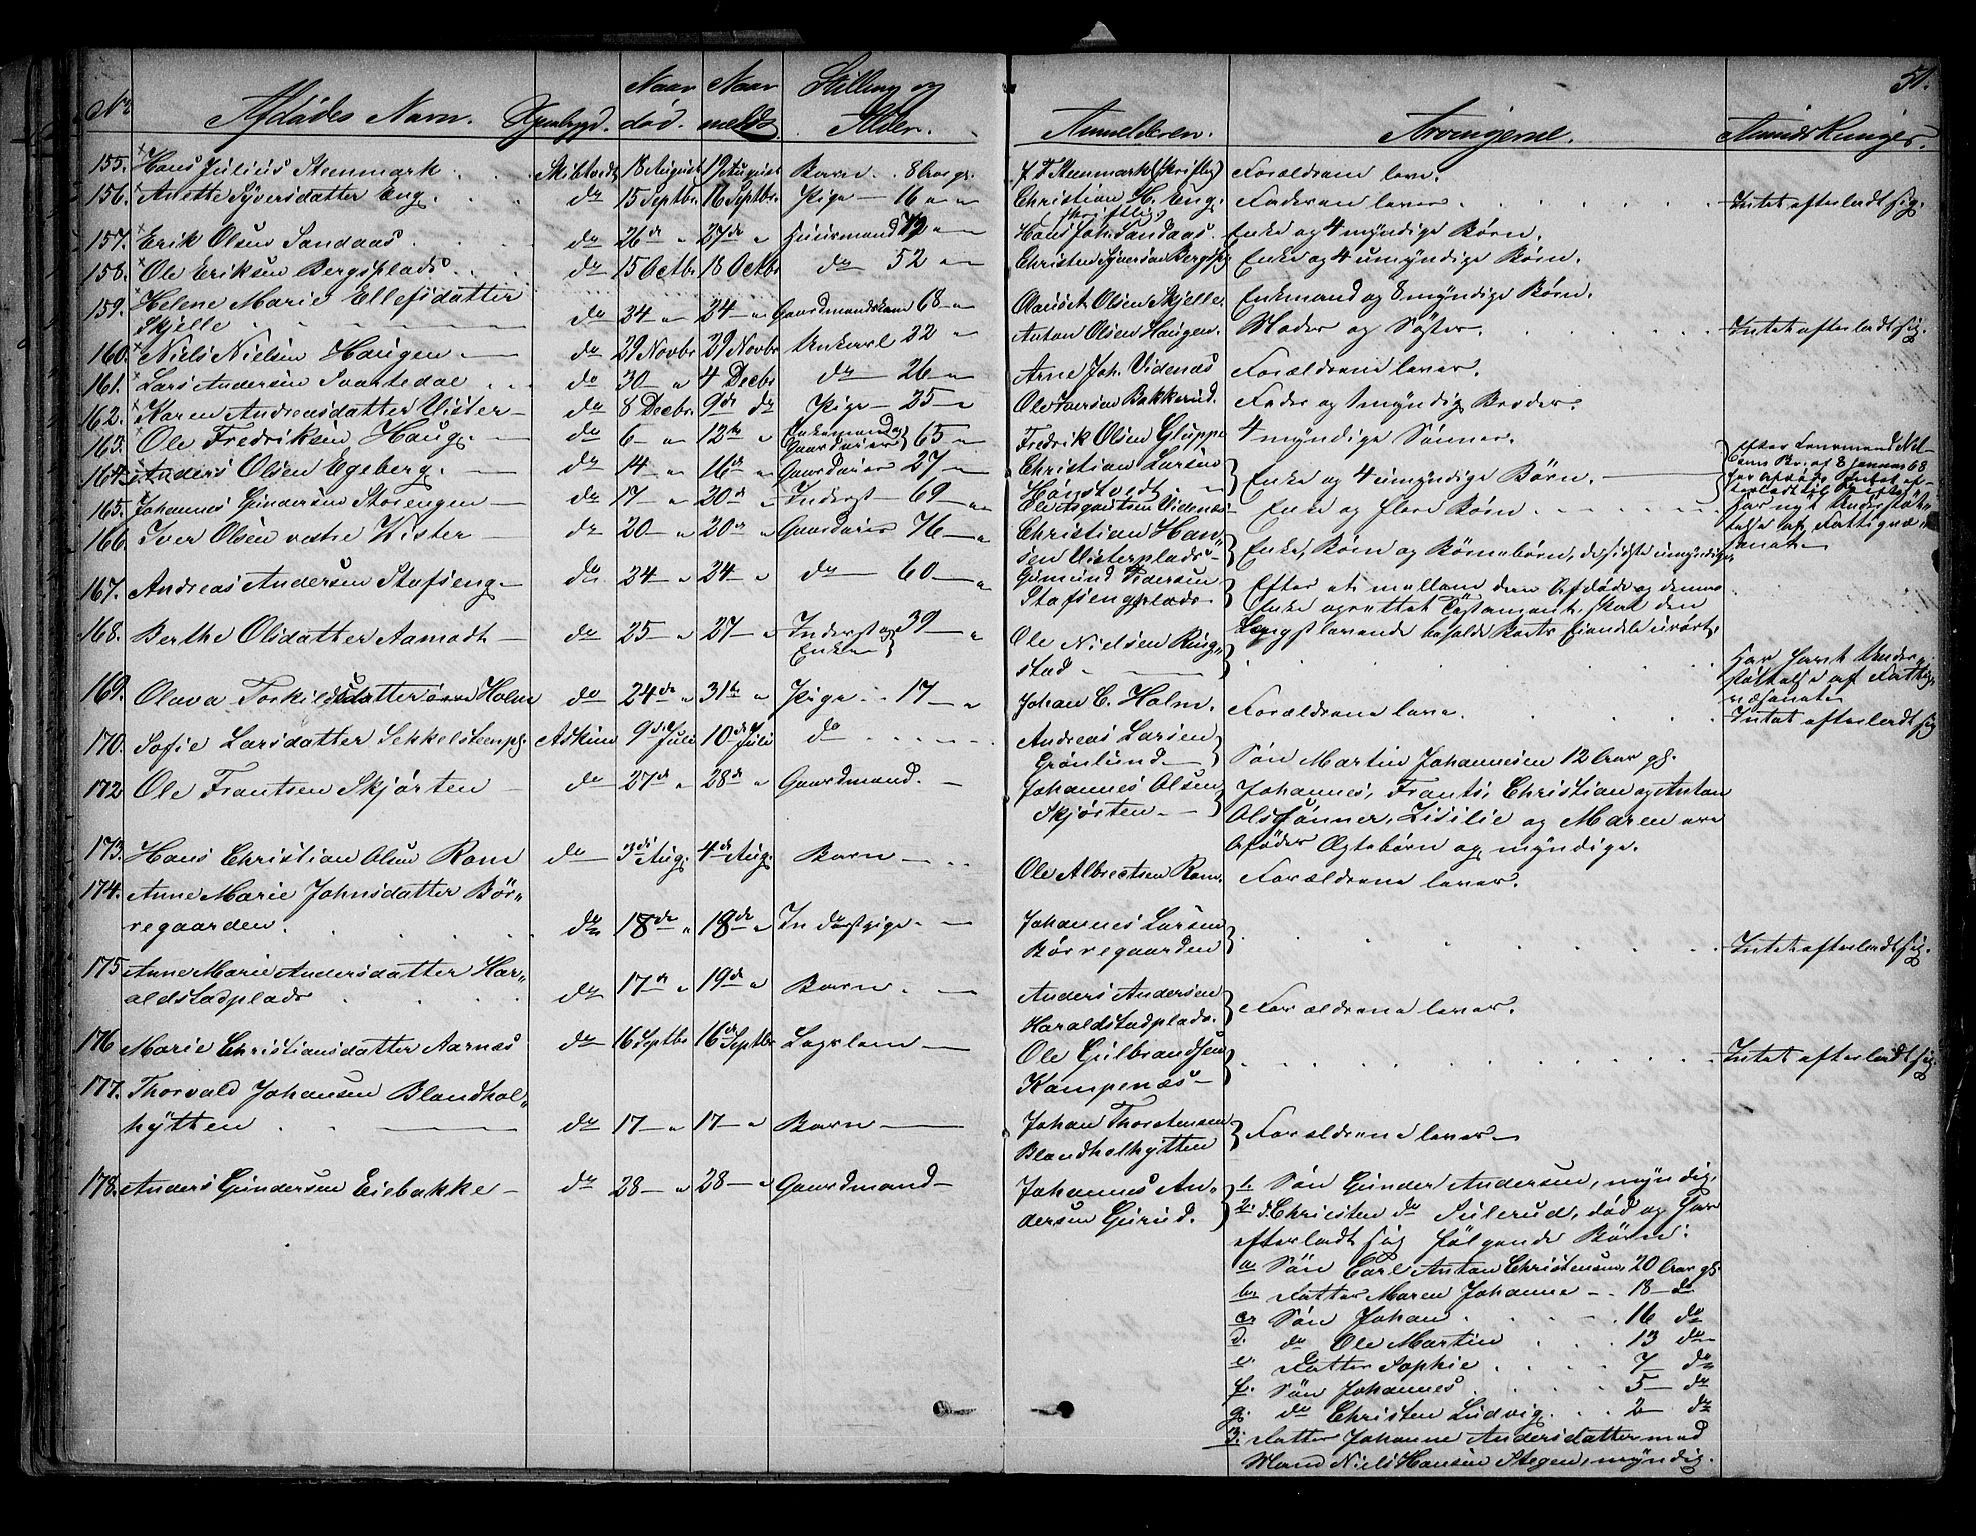 51.
No Afdødes Navn. Thinglag. Naar død. Naar meldt Stilling og Alder. Anmelderen. Arvingerne. Anmærkninger.
155. Hans Julius Stenmark Skibtvedt 18 August 19 August Barn 8 Aar gl. (skriftlig) Forældrene leve.
156. Anette Syversdatter Eng. do 15 Septbr. 16 Septbr. Pige 16 " Christian H. Eng. (skriftlig) Faderen lever Intet efterladt sig.
157. Erik Olsen Sandaas do 26de " 27de " Huusmand Hans Joh. Sandaas. Enke og 4 myndige Børn.
158. Ole Eriksen Bergsplads do 15 Octbr 18 Octbr do 52 " Christen Syversen Enke og 4 umyndige Børn.
159. Helene Marie Ellefsdatter
Skjelle do 24 " 24 " Gaardmandskone 68 " Olsen Skjelle. Enkemand og 8 myndige Børn.
160. Niels Nielsen Haugen do 29 Novbr 29 Novbr Unkarl 22 " Anton Olsen Haugen. Moder og Søster. Intet efterladt sig
161. Lars Andersen Svartedal do 30 " 4 Decbr do 26 " Arne Joh. Videnæs Forældrene lever.
162. Karen Andreasdatter Vister do 8 Decbr. 9de do Pige 25 " Ole Iversen Bakkerud. Fader og 1 myndig Broder.
163. Ole Fredriksen Haug. do 6 " 12te " Enkemand og Gaardeier 65 " Fredrik Olsen Gluppe 4 myndige Sønner.
164. Anders Olsen Egeberg. do 14 " 16de " Gaardeier 27 " Christian Larsen
Hønstvedt Enke og 4 umyndige Børn. af 8 Januar 68
165. Johannes Gundersen Storengen do 17 " 20de " Inderst 69 " Videnæs Enke og flere Børn har nydt Understøttelse af Fattigvæsenet
166 Iver Olsen vestre Vister do 20 " 20de " Gaardeier 76 " Christian Hansen Visterplads Enke, Børn og Børnebørn, de sidste umyndige
167. Andreas Andersen Stafseng do 24 " 24 " do 60 " Gumund Pedersen
Stafsengplads Efter et mellem den Afdøde og dennes
Enke oprettet Testament skal den
Længstlevende beholde Boets Eiendele urørt.
168. Berthe Olsdatter Aamodt do 25 " 27 " Inderst og Enke 39 " Ole Nielsen Ringstad Har havt Understøttelse af Fattigvæsenet
169. Olava Torkildsdatter øvre Holm do 24de " 31te " Pige 17 " Johan C. Holm. Forældrene leve. Intet efterladt sig
170. Sofie Larsdatter Sekkelsteenpl. Askim 9de Juli 10de Juli do Andreas Larsen
Grønlund Søn Martin Johannesen 12 Aar gl.
172 Ole Frantsen Skjørten do 27de " 28de " Gaardmand. Johannes Olsen
Skjørten Johannes, Frants, Christian og Anton
Olssønner, Lisilie og Maren ere
Afdødes Ægtebørn og myndige.
173. Hans Christian Olsen Rom do 3de Aug. 4de Aug. Barn Ole Albrectsen Rom. Forældrene lever.
174. Anne Marie Johnsdatter Børregaarden. do 18de " 19de " Inderstpige Johannes Larsen
Børregaarden Intet efterladt sig.
175 Anne Marie Andersdatter Haraldstadplads do 17de " 19de " Barn Anders Andersen
Haraldstadplads. Forældrene lever.
176 Marie Christiansdatter Aarnæs do 16 Septbr 16de Septbr. Lægslem Ole Gulbrandsen
Kampenæs Intet efterladt sig.
177. Thorvald Johansen Blandholhytten do 17 " 17 " Barn Johan Thorstensen
Blandholhytten Forældrene lever
178. Anders Gundersen Eiebakke do 28 " 28 " Gaardmand Johannes Andersen Gurud. 1. Søn Gunder Andersen, myndig,
2. d. Christen do Sulerud, død og har
efterladt sig følgende Børn:
a. Søn Carl Anton Christensen, 20 Aar gl.
b. Datter Maren Johanne 18 do
c. Søn Johan 16 do
d. do Ole Martin 13 do
e. Datter Sophie 7 do
f. Søn Johannes 5 do
g. do Christen Ludvig 2 do
3. Datter Johanne Andersdatter med
Mand Niels Hansen Stegen, myndig.